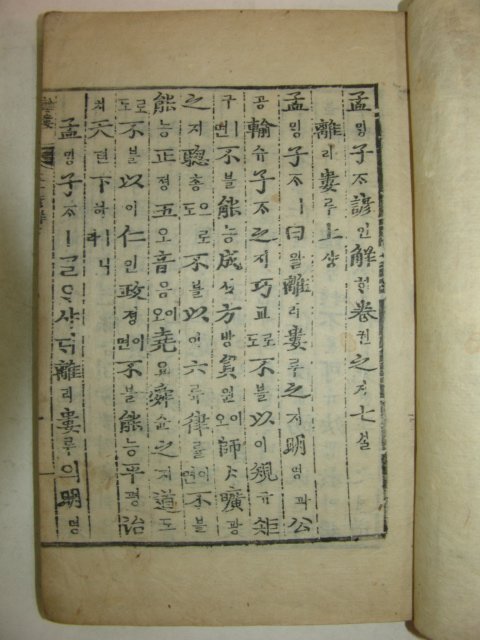 孟밍子ᄌᆞ諺언解ᄒᆡ卷권之지七칠
離리婁루上샹
孟밍子ᄌᆞㅣ曰왈離리婁루之지明명과公
공輸슈子ᄌᆞ之지巧교로도不블以이規규矩
구ㅣ면不블能능成셩方방員원이오師ᄉᆞ曠광
之지聰총으로도不블以이六륙律률이면不블
能능正졍五오音음이오堯요舜슌之지道도
로도不블以이仁인政졍이면不블能능平평治
치天텬下하ㅣ니
孟밍子ᄌᆞㅣᄀᆞᆯᄋᆞ샤ᄃᆡ離리婁루의明명